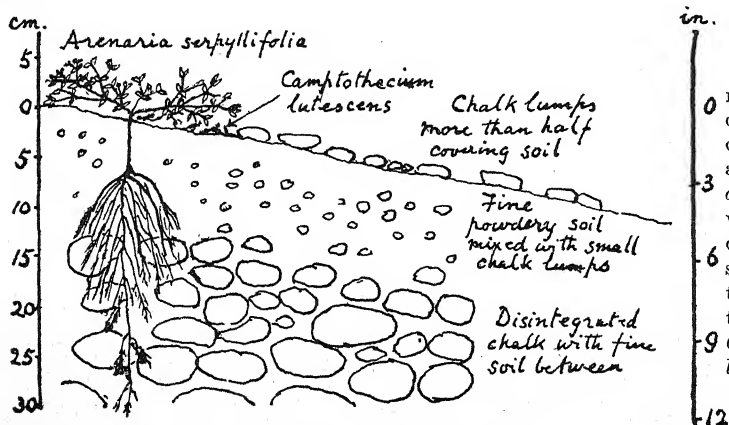 cm.
in.
Arenaria serpyllifolia
5
Camptothecium
lutescens
Chalk lumps
more than half
covering soil
0
0
5
3
Fine
powdery soil
mixed with small
chalk lumps
10
15
6
20
Disintegrated
chalk with fine
soil between
25
9
30
12